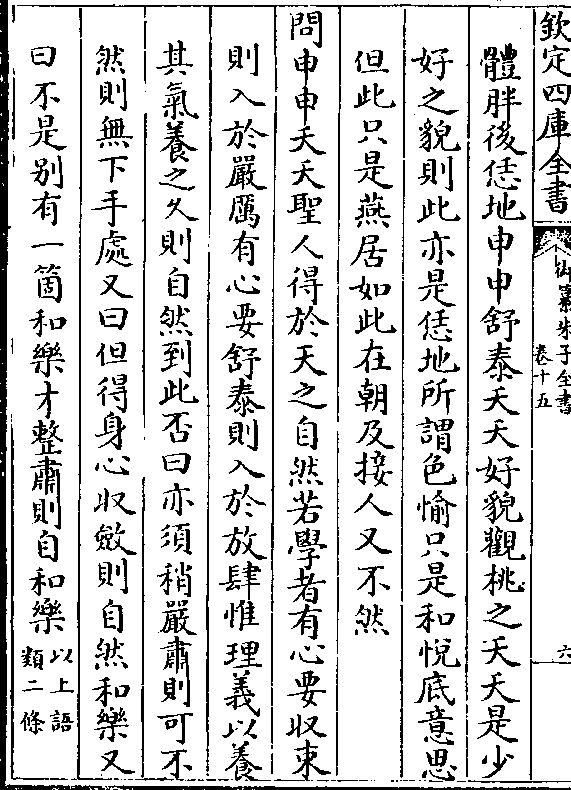 欽定四庫全書
御纂朱子全書
卷十五
六
體胖後恁地申申舒泰夭夭好貌觀桃之夭夭是少
好之貌則此亦是恁地所謂色愉只是和悅底意思
但此只是燕居如此在朝及接人又不然
問申申夭夭聖人得於天之自然若學者有心要收束
則入於嚴厲有心要舒泰則入於放肆惟理義以養
其氣養之久則自然到此否曰亦須稍嚴肅則可不
然則無下手處又曰但得身心收斂則自然和樂又
曰不是别有一箇和樂才整肅則自和樂
以上語
類二條